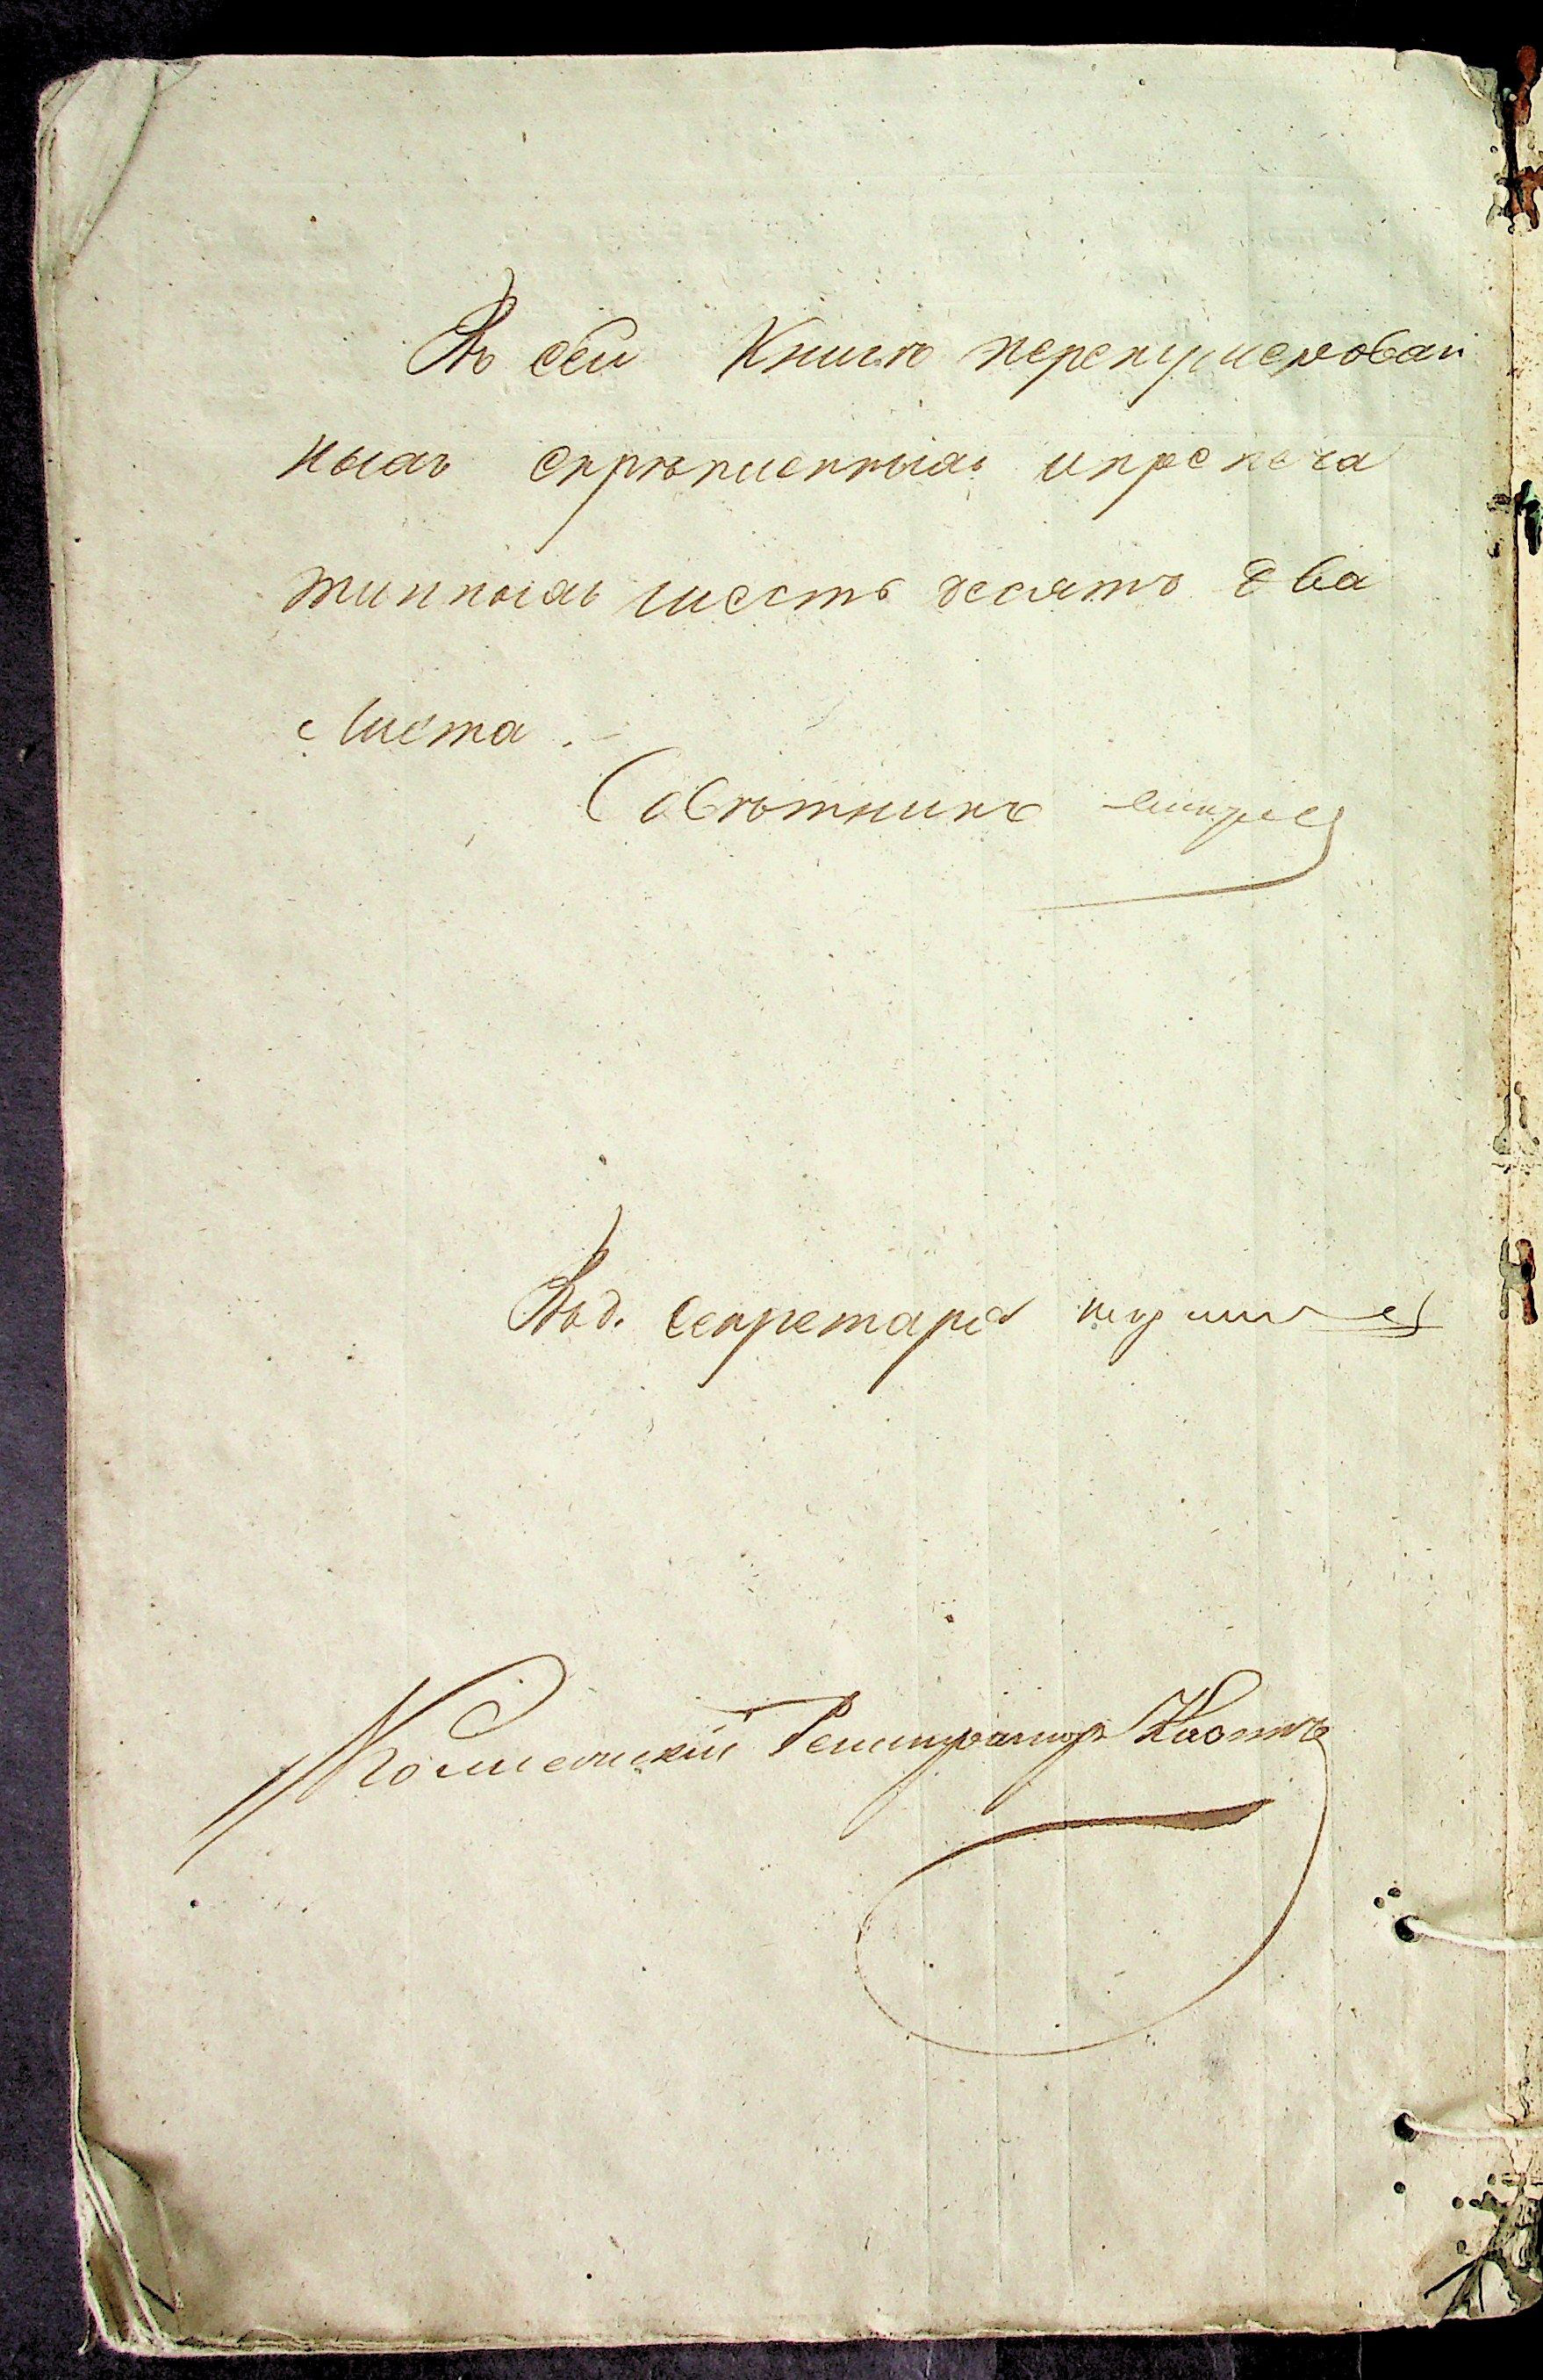 Въ сей Книгѣ перенумерован
ныхъ скрѣпленныхъ ипрспеча
танныхъ шесть десятъ два
Листа.
Совѣтникъ
Вод. Секретаря
Коллежскій Регистраторъ